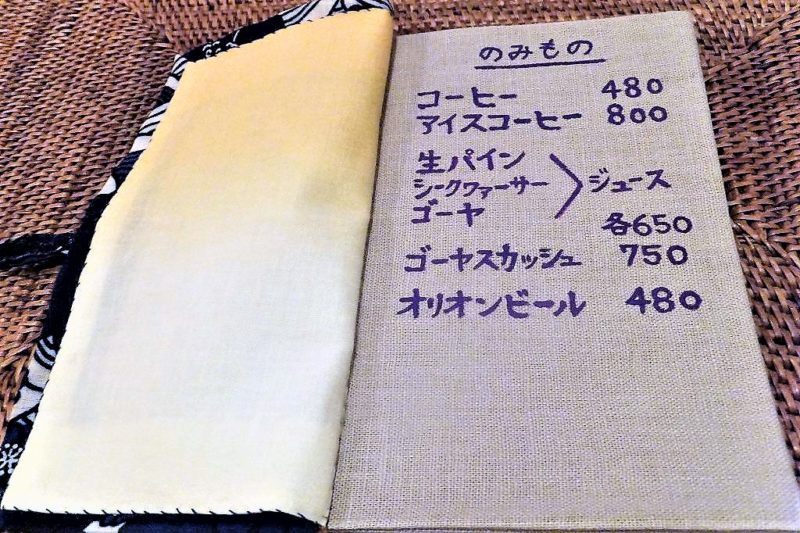 のみもの
コーヒー 480
アイスコーヒー 800
生パイン
シークヮーサー ＞ジュース
ゴーヤ
各650
ゴーヤスカッシュ 750
オリオンビール 480